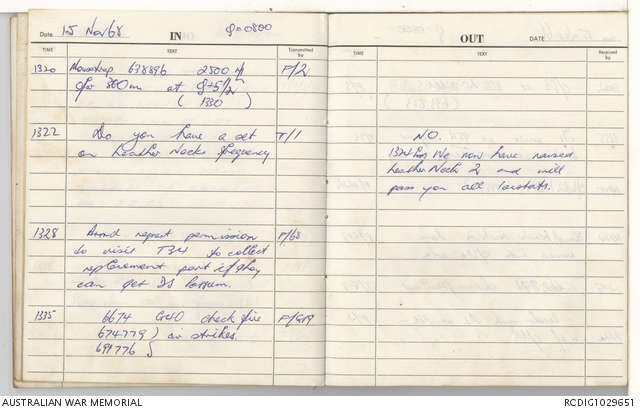 Date 15 Nov 68 IN g=0800
TIME TEXT Transmitted by
1320 Mousetrap 638896 2500 m/
for 800m at g+5½
(1330)
F/2
1322 Do you have a set
on Leather Necks frequency
T/1
1328 request permission
to visit T34 to collect
replacement part if they
can get DS
F/68
1335 6674 check fire
674779 } air strikes.
691776 }
OUT DATE
TIME TEXT Received by
NO.
We now have raised
Leather Neck 2 and will
pass you all
AUSTRALIAN WAR MEMORIAL
RCDIG1029651